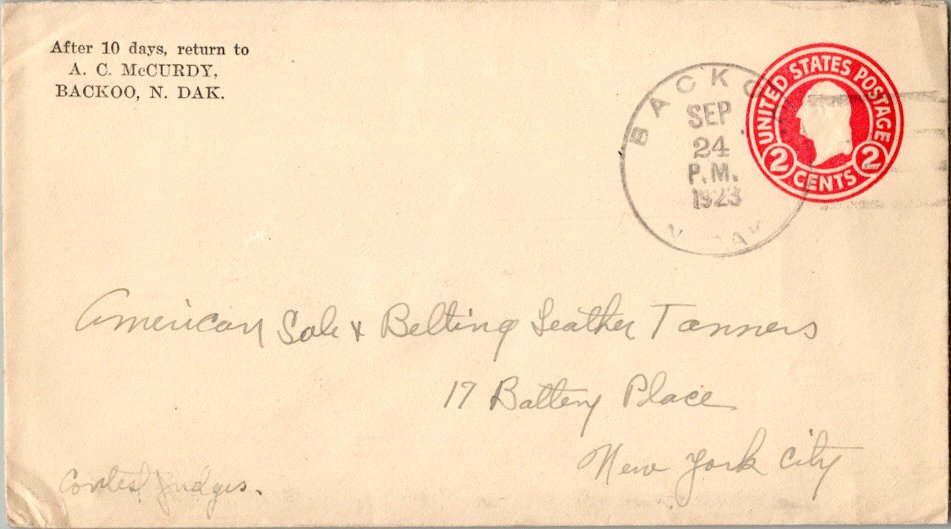 After 10 days, return to
A. C. McCURDY,
BACKOO, N. DAK.
BACKO
SEP
24
P.M.
1923
UNITED STATES POSTAGE
2 CENTS 2
American Sole & Belting Leather Tanners
17 Battery Place
New York City
Contest Judges.